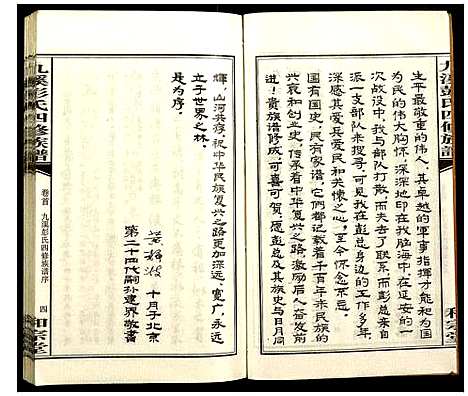 九溪彭氏四修族譜
生平最敬重的伟人，其卓越的軍事指揮才能和为国
为民的伟大胸怀，深深地印在我脑海中，在延安的一
次战役中，我与部队打散，而失去了联系，而彭总亲自
派一支部队来搜寻，可見我在彭总身边的工作多年，
深感其爱兵爱民和关懷之心，至今怀念不忘。
国有国史，民有家谱，它们都记载着千百年来民族的
兴衰和创业史，传承着中华复兴之路，激励后人奋发有
志！贵族谱修成，可喜可贺，愿彭总及其族史与日月同
和宗堂
輝，山河共存，祝中华民族复兴之路更加深远，宽广，永远
立于世界之林。
是为序。
十月于北京
第二十四代嗣孙建界敬書
九溪彭氏四修族譜
卷首 九溪彭氏四修族谱序
四
和宗堂